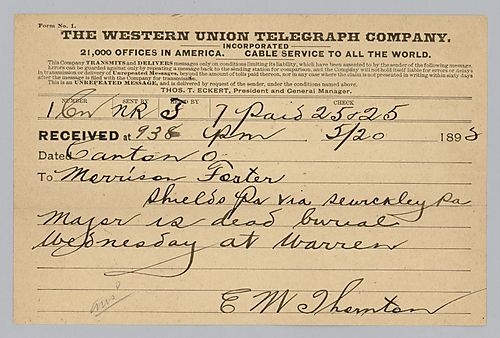 Form No. 1.
THE WESTERN UNION TELEGRAPH COMPANY.
INCORPORATED
21,000 OFFICES IN AMERICA. CABLE SERVICE TO ALL THE WORLD.
This Company TRANSMITS and DELIVERS messages only on conditions limiting its liability, which have been assented to by the sender of the following message.
Errors can be guarded against only by repeating a message back to the sending station for comparison, and the Company will not hold itself liable for errors or delays
in transmission or delivery of Unrepeated Messages, beyond the amount of tolls paid thereon, nor in any case where the claim is not presented in writing within sixty days
after the message is filed with the Company for transmission.
This is an UNREPEATED MESSAGE, and is delivered by request of the sender, under the conditions named above.
THOS. T. ECKERT, President and General Manager.
NUMBER SENT BY REC'D BY CHECK
1 NR S 7 Paid 25 & 25
RECEIVED at 938 pm 5/20 1895
Dated Canton O
To Morrison Foster
Shields Pa via Sewickley Pa
Major is dead burial
Wednesday at Warren
E W Thornton